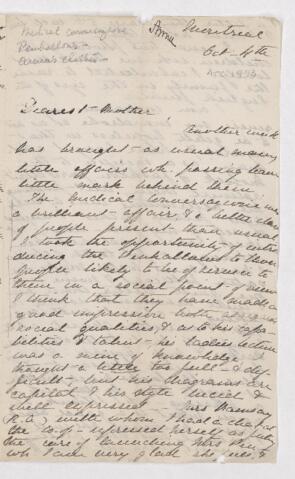 Medical conversazione
Penhallows -
Montreal
Oct 4th
Dearest Mother
Another week
has brought as usual many
little affairs wh. passing leave
little mark behind them.
The Medical Conversazione was
a brilliant affair, & a better class
of people present than usual
I took the opportunity of intro
ducing the Penhallows to those
people likely to be of service to
them in a social point of view
I think that they have made a
good impression both as regards
social qualities & as to his capa
bilities & talent - his ladies lecture
was a mine of knowledge I
thought a little too full & dif
ficult - but his diagrams are
capital & his style lucid &
well expressed - Mrs Ramsay
R.A.) with whom I had a chat at
the expressed herself as
the care of launching Mrs Pen.
wh I am very glad she feels, &